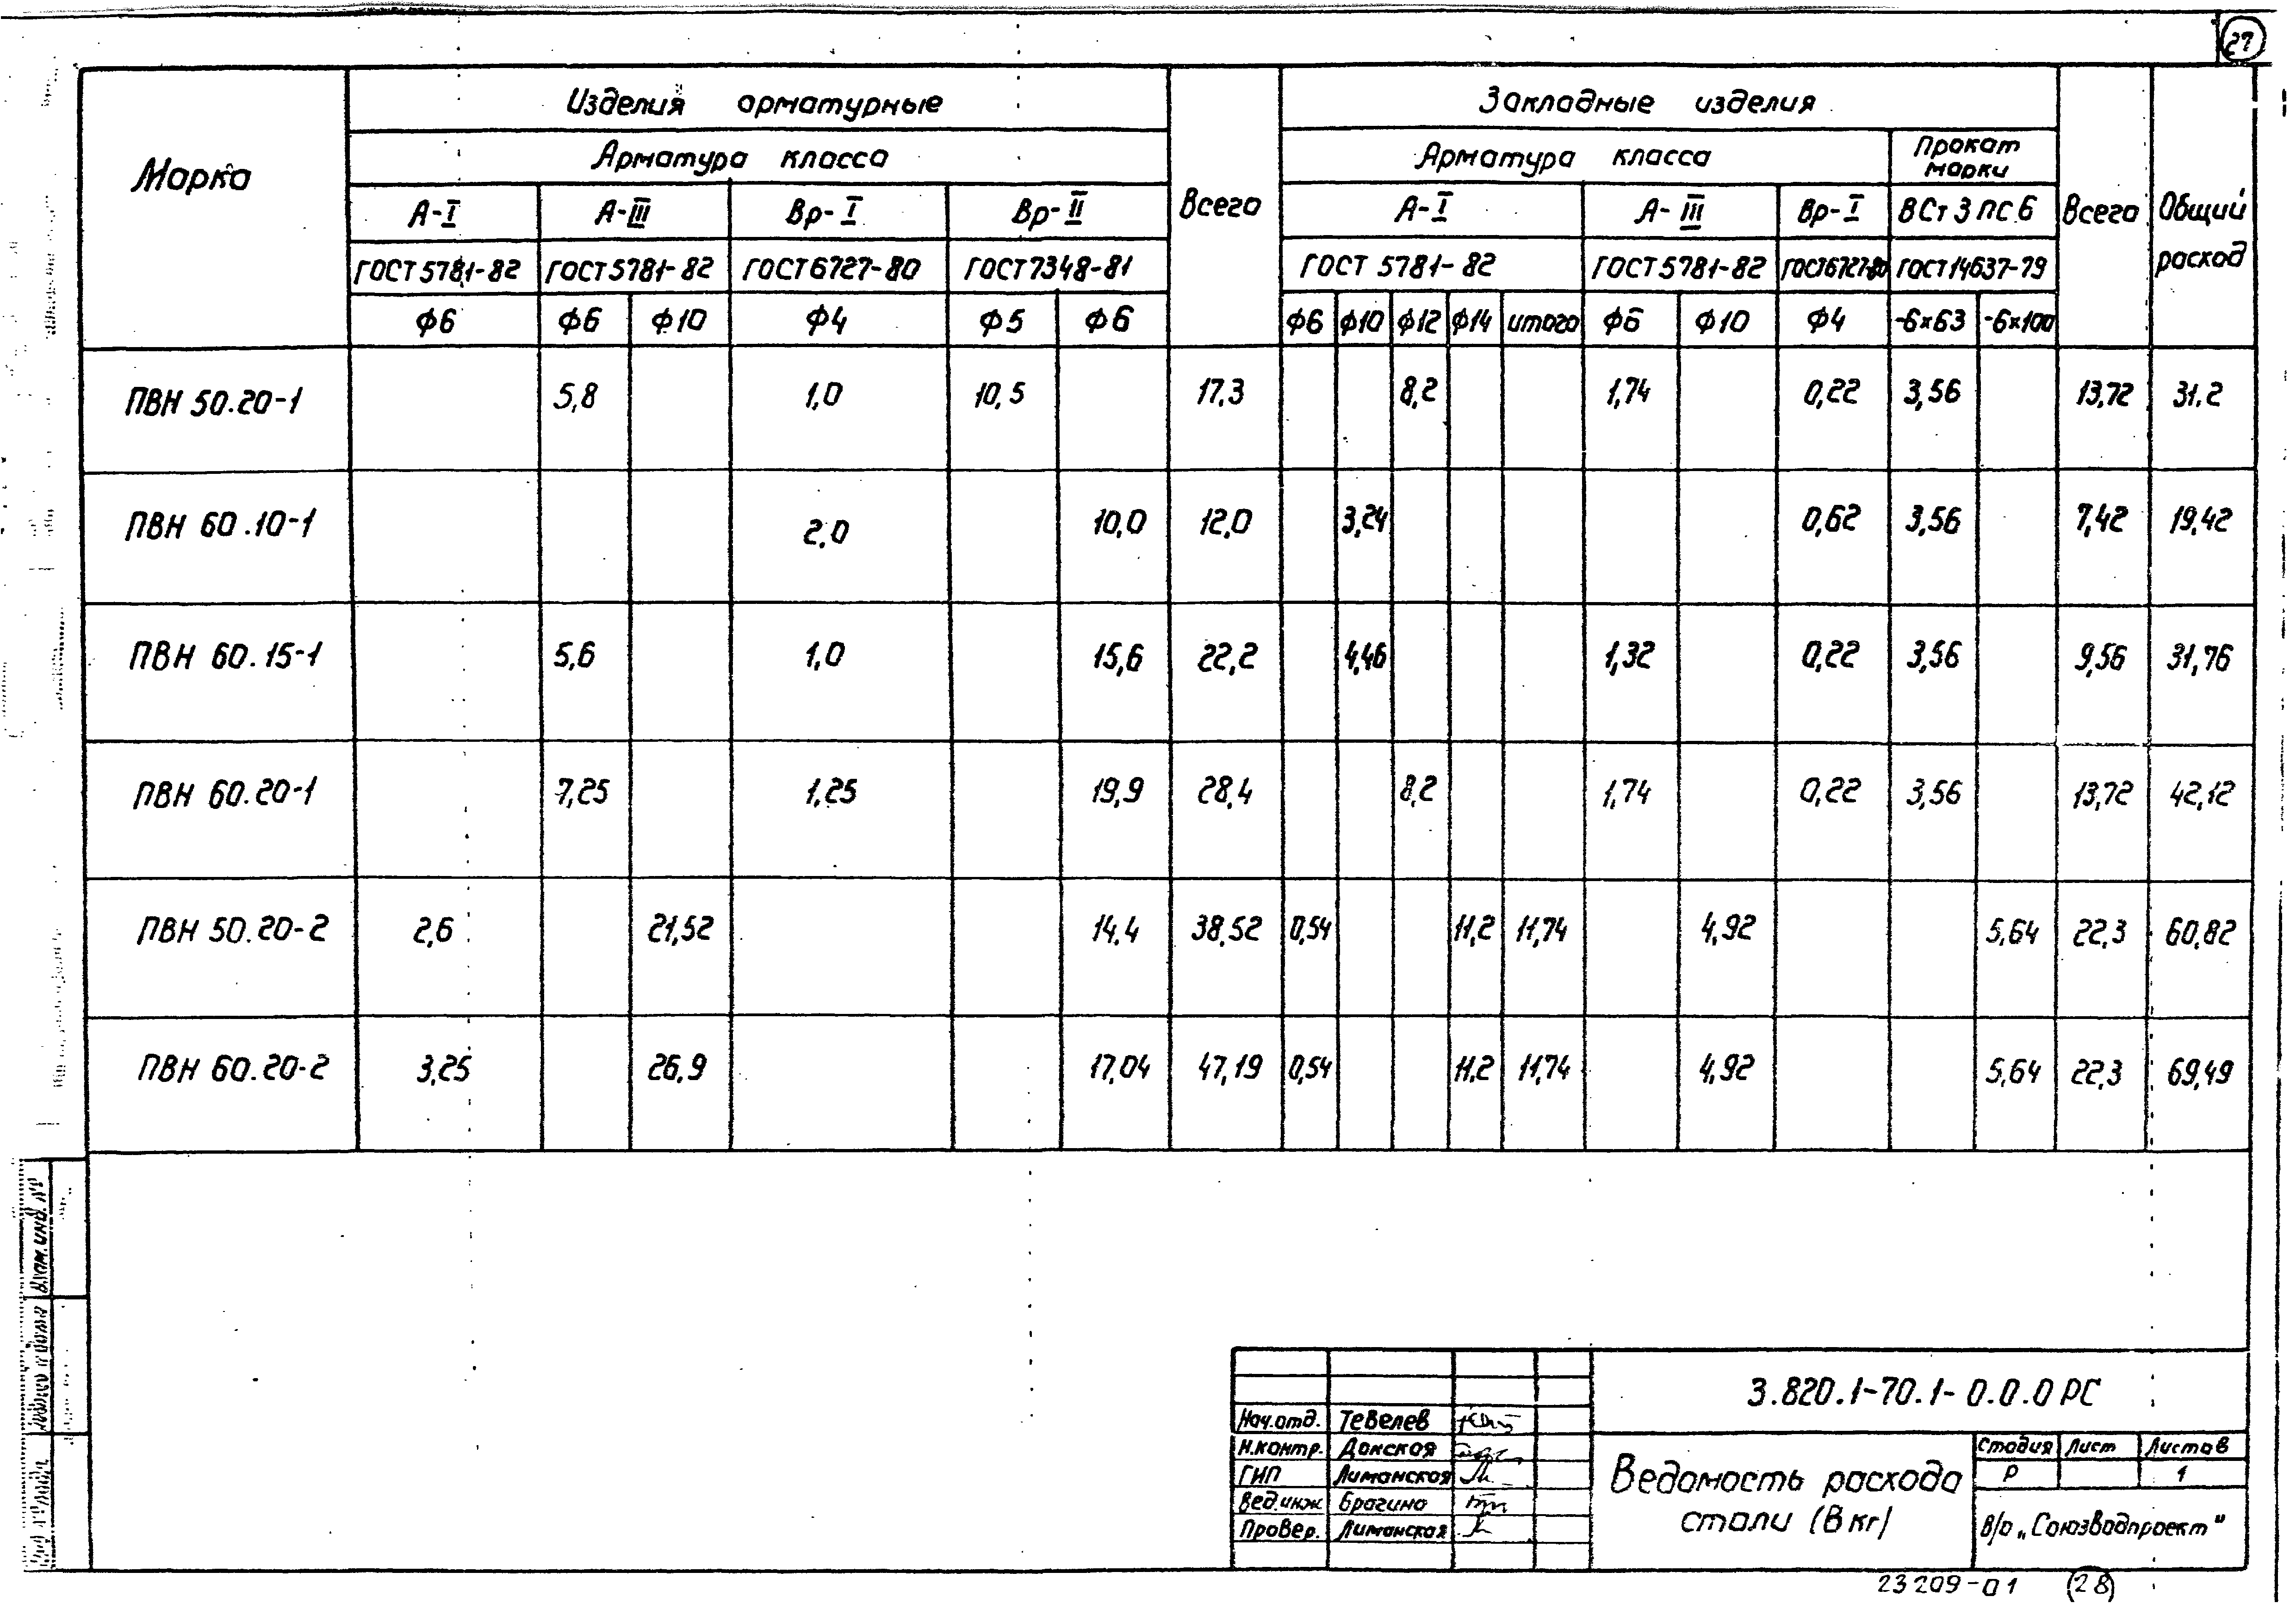 27
Марка
Изделия арматурные
Всего
Закладные изделия
Всего
Общий расход
Арматура класса
Арматура класса
Прокат марки
А-I А-III Вр-I Вр-II
А-I А-III Вр-I ВСт3пс6
ГОСТ 5781-82 ГОСТ 5781-82 ГОСТ 6727-80 ГОСТ 7348-81
ГОСТ 5781-82 ГОСТ 5781-82 ГОСТ 6727-80 ГОСТ 14637-79
Ф6 Ф6 Ф10 Ф4 Ф5 Ф6
Ф6 Ф10 Ф12 Ф14 итого Ф6 Ф10 Ф4 -6×63 -6×100
ПВН 50.20-1 5,8 1,0 10,5 17,3 8,2 1,74 0,22 3,56 13,72 31.2
ПВН 60.10-1 2,0 10,0 12,0 3,24 0,62 3,56 7,42 19,42
ПВН 60.15-1 5,6 1,0 15,6 22,2 4,46 1,32 0,22 3,56 9,56 31,76
ПВН 60.20-1 7,25 1,25 19,9 28,4 8,2 1,74 0,22 3,56 13,72 42,12
ПВН 50.20-2 2,6 21,52 14,4 38,52 0,54 11,2 11,74 4,92 5,64 22,3 60,82
ПВН 60.20-2 3,25 26,9 17,04 47,19 0,54 11,2 11,74 4,92 5,64 22,3 69,49
Взам.инв.№
3.820.1-70.1-0.0.0 РС
Нач.отд. Тевелев
Н.контр. Донская
ГИП Лиманская
Вед.инж. Брагина
Провер. Лиманская
Ведомость расхода
стали (В кг)
Стадия Лист Листов
Р 1
В/о „Союзводпроект"
23209-01 (28)